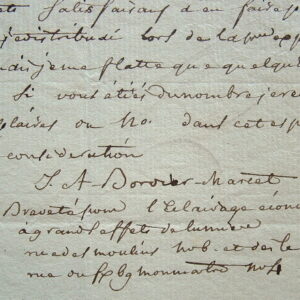 et Satisfaisant d'en faire p
je distribué lors de la
dis je me flatte que quelqu
Si vous étiés du nombre je re
plaires ou No. dans cet esp
consideration
I. A. Bordier-Marcet
Breveté pour l'Eclairage econo
à grands effets de lumiere
rue des moulins No 6. et des le
rue du fbg montmatre No 4